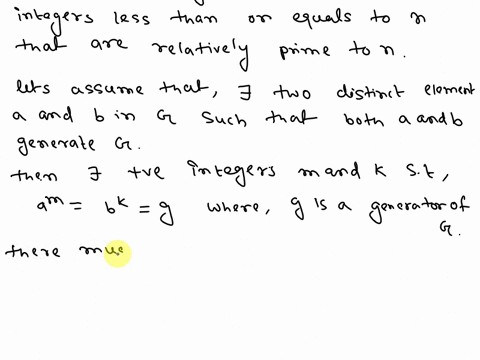 integers less than or equals to n
that are relatively prime to n.
lets assume that, ∃ two distinct element
a and b in G such that both a and b
generate G.
then ∃ +ve integers m and k s.t,
a^m = b^k = g where, g is a generator of
G.
there mus